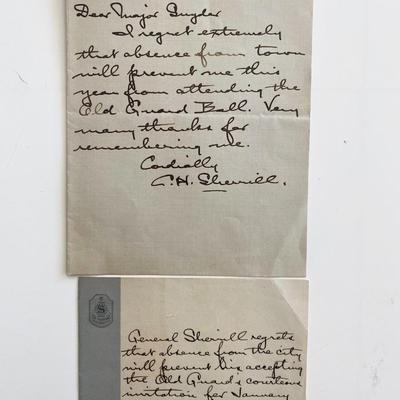 Dear Major Snyder
I regret extremely
that absence from town
will prevent me this
year from attending the
Old Guard Ball. Very
many thanks for
remembering me.
Cordially
C. H. Sherrill.
S
General Sherrill regrets
that absence from the city
will prevent his accepting
the Old Guard's courteous
invitation for January